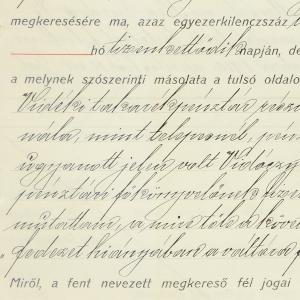 megkeresésére ma, azaz egyezerkilenczszáz
hó tizenkettődik napján, de
a melynek szószerinti másolata a tulsó oldalo
Vidéki takarékpénztár részv
nála, mint telepesnél, pén
ugyanott jelen volt Vidóczy
pénztári főkönyvelőnek fize
mutattam, a mire tőle a köve
fedezet hiányában a váltóra f
Miről, a fent nevezett megkereső fél jogai